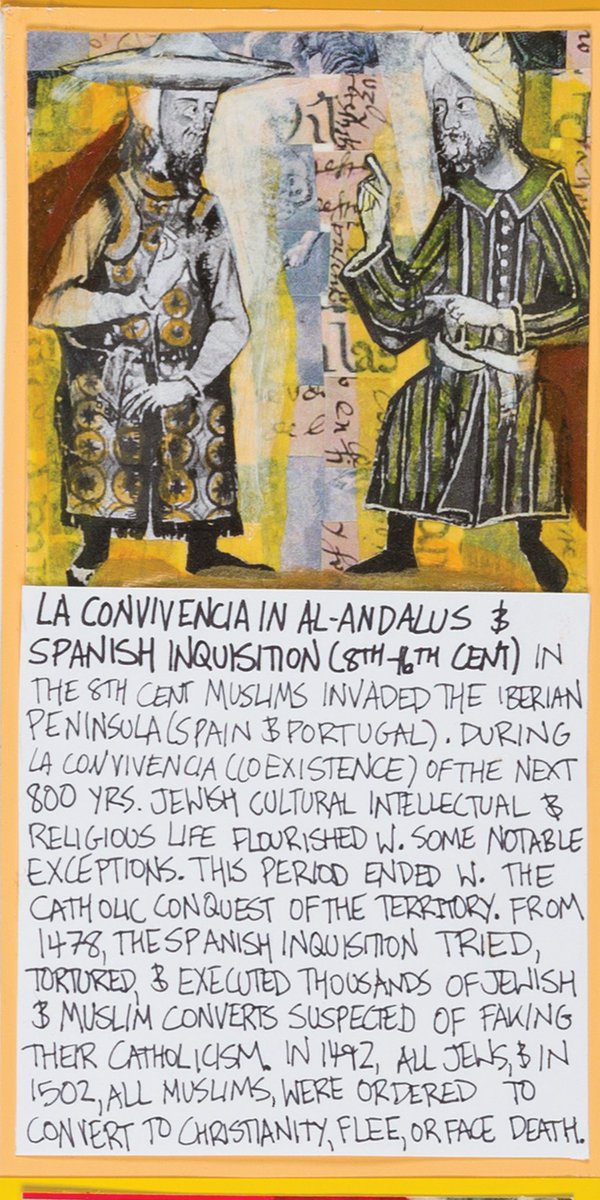 LA CONVIVENCIA IN AL-ANDALUS &
SPANISH INQUISITION (8TH-16TH CENT) IN
THE 8TH CENT MUSLIMS INVADED THE IBERIAN
PENINSULA (SPAIN & PORTUGAL). DURING
LA CONVIVENCIA (COEXISTENCE) OF THE NEXT
800 YRS. JEWISH CULTURAL INTELLECTUAL &
RELIGIOUS LIFE FLOURISHED W. SOME NOTABLE
EXCEPTIONS. THIS PERIOD ENDED W. THE
CATHOLIC CONQUEST OF THE TERRITORY. FROM
1478, THE SPANISH INQUISITION TRIED,
TORTURED, & EXECUTED THOUSANDS OF JEWISH
& MUSLIM CONVERTS SUSPECTED OF FAKING
THEIR CATHOLICISM. IN 1492, ALL JEWS, & IN
1502, ALL MUSLIMS, WERE ORDERED TO
CONVERT TO CHRISTIANITY, FLEE, OR FACE DEATH.